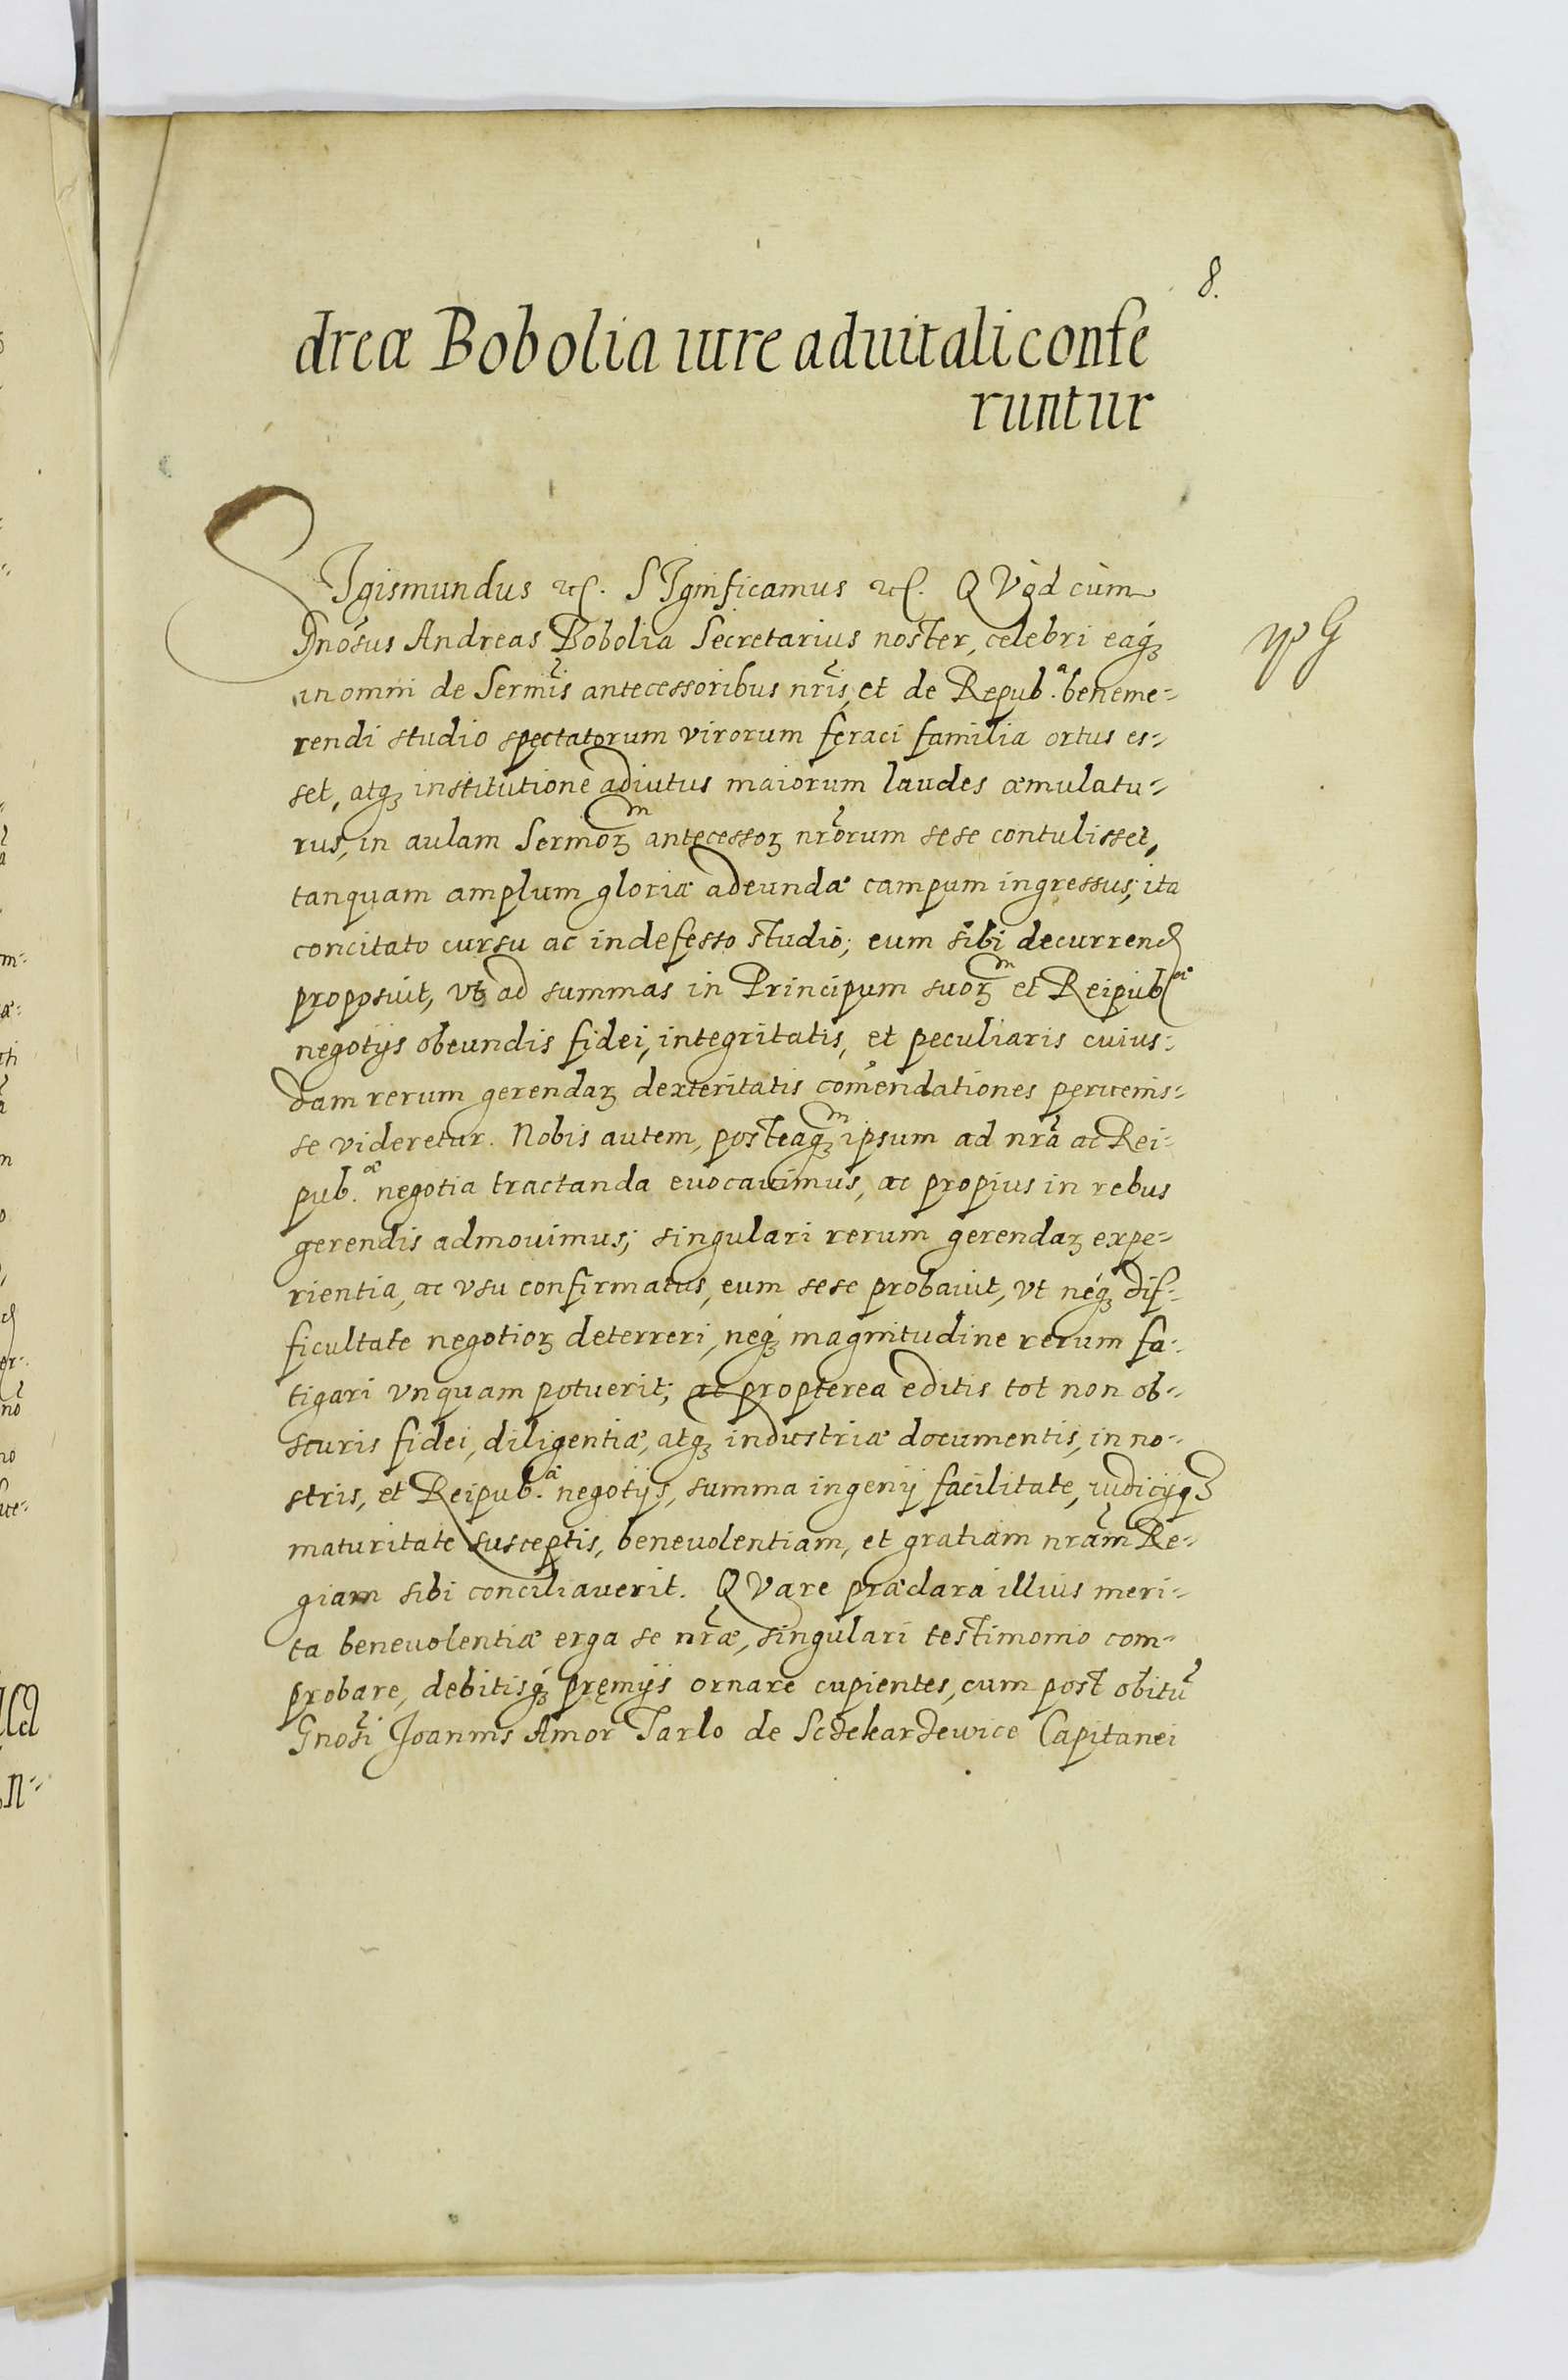 8.
dreæ Bobolia iure aduitali confe
runtur
SIgismundus etc. SIgnificamus etc. QVòd cùm
Gnosus Andreas Bobolia Secretarius noster, celebri eaq́ꝫ
in omni de Sermis̃ antecessoribus nris̃, et de Repub.ᵃ beneme-
rendi studio spectatorum virorum feraci familia ortus es-
set, atqꝫ institutione adiutus maiorum laudes æmulatu-
rus, in aulam Sermoꝝᵐ antecessoꝝ nrõrum sese contulisset,
tanquam amplum gloriæ adeundæ campum ingressus; ita
concitato cursu ac indefesso studio; eum sibi decurrend
proposuit, vt ad summas in Principum suoꝝᵐ et Reipubᵃᵉ
negotijs obeundis fidei, integritatis, et peculiaris cuius-
dam rerum gerendaꝝ dexteritatis comẽndationes peruenis-
se videretur. Nobis autem, posteaqꝫᵐ ipsum ad nrã ac Rei-
pub.ᵃᵉ negotia tractanda euocauimus, ac propius in rebus
gerendis admouimus; singulari rerum gerendaꝝ expe-
rientia, ac vsu confirmatus, eum sese probauit, vt neq́ꝫ dif-
ficultate negotioꝝ deterreri, neq́ꝫ magnitudine rerum fa-
tigari vnquam potuerit; ac propterea editis tot non ob-
scuris fidei, diligentiæ, atqꝫ industriæ documentis, in no-
stris, et Reipub.ᵃᵉ negotijs, summa ingenij facilitate, iudicijqꝫ
maturitate susceptis, beneuolentiam, et gratiam nrãm Re-
giam sibi conciliauerit. QVare præclara illius meri-
ta beneuolentiæ erga se nræ̃, singulari testimonio com-
probare, debitisq́ꝫ pręmijs ornare cupientes, cum post obitũ
Gnosĩ Joannis Amor Tarlo de Sczekarzewice Capitanei